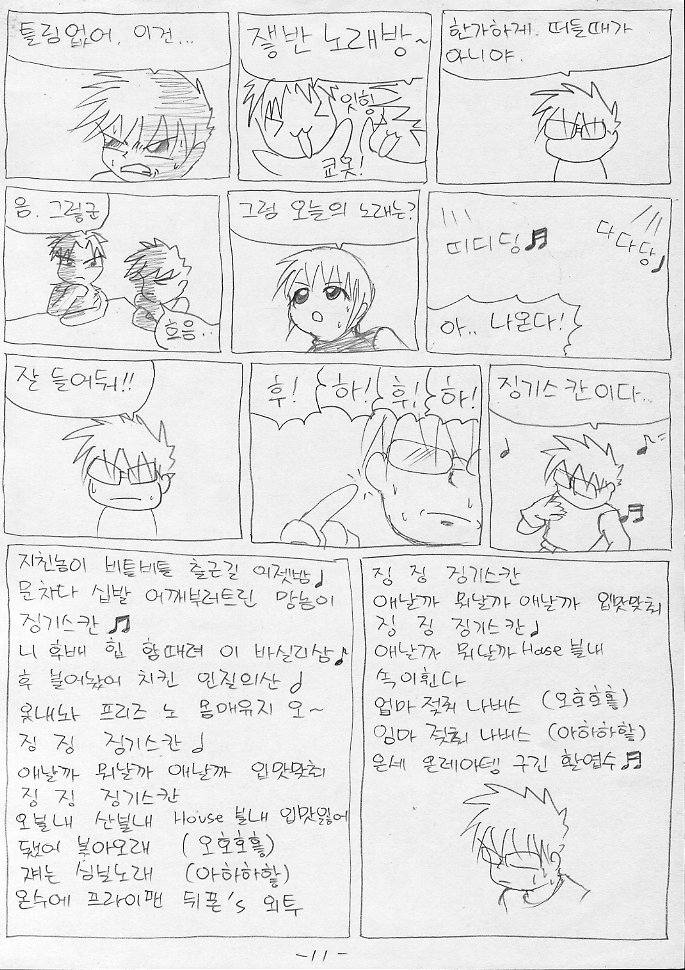 틀림없어. 이건...
쟁반 노래방~
잇힝
쿄옷!
한가하게. 떠들때가
아니야.
음. 그렇군
흐음..
그럼 오늘의 노래는?
띠디딩♬
다다당♪
아.. 나온다!
잘 들어둬!!
후! 하! 후! 하!
징기스칸이다..
지친놈이 비틀비틀 출근길 어젯밤♩
문차다 십발 어깨부러트린 망놈이
징기스칸♬
니 후배 힙 함때려 이 바실리삼♪
후 불어놨어 치킨 인질의산♩
옷내놔 프리즈 노 몸매유지 오~
징 징 징기스칸♩
애날까 뭐날까 애날까 입맛맞춰
징 징 징기스칸
오불내 산불내 House 불내 입맛잃어
됐어 봏아오래 (오호호홓)
쟤는 싱닐노래 (아하하핳)
온수에 프라이팬 뒤폰's 외투
징 징 징기스칸
애날까 뭐날까 애날까 입맛맞춰
징 징 징기스칸♩
애날까 뭐날까 House 불내
속이휜다
엄마 젖줘 나버스 (오호호홓)
임마 젖줘 나버스 (아하하핳)
은세 온레아뎅 구긴 환엽수♬
-11-